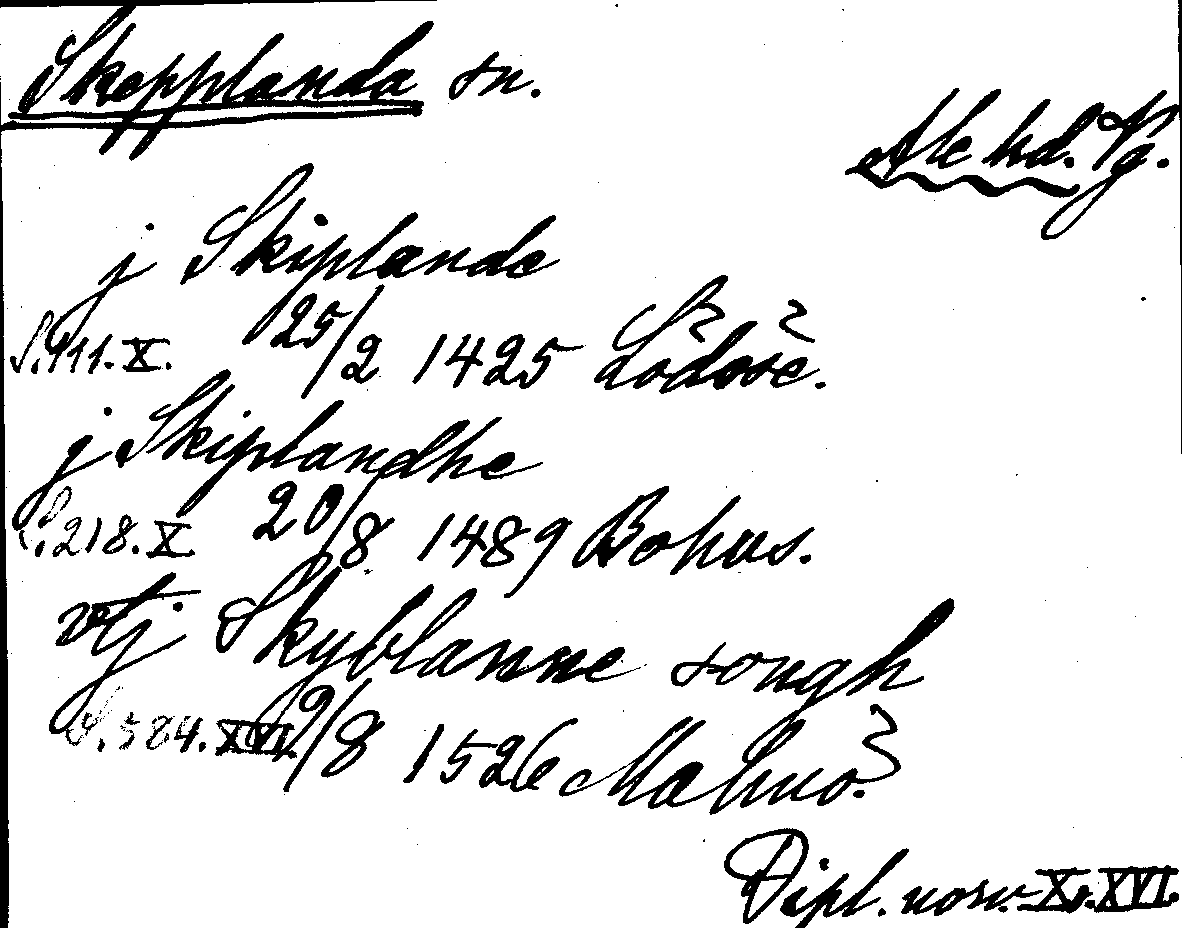 Skepplanda sn.
Ale hd. Vg.
j Skiplande
S.111.X. 25/2 1425 Lödöse.
j Skiplandhe
S.218.X. 20/8 1489 Bohus.
vtj Skyblanne songh
S.584.XVI. 9/8 1526 Malmö.
Dipl. norv. X. XVI.